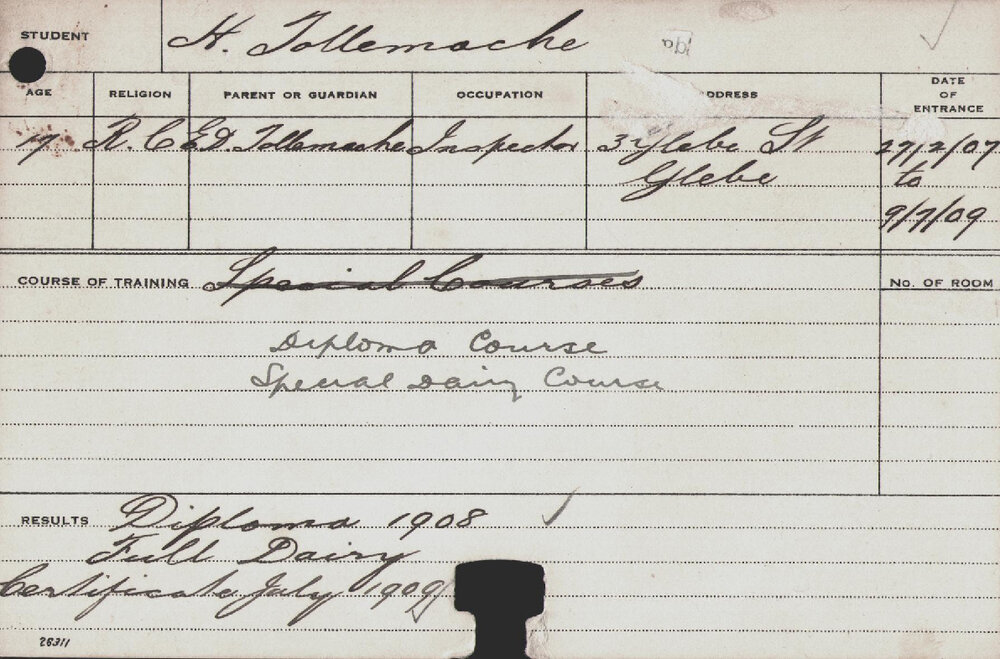 STUDENT H. Tollemache
AGE RELIGION PARENT OR GUARDIAN OCCUPATION DDRESS DATE OF ENTRANCE
17 R.C E.D. Tollemache Inspector 3 Glebe St 27/2/07
Glebe to
9/7/09
COURSE OF TRAINING Special Courses No. OF ROOM
Diploma Course
Special Dairy Course
RESULTS Diploma 1908 ✓
Full Dairy
Certificate July 1909
26311